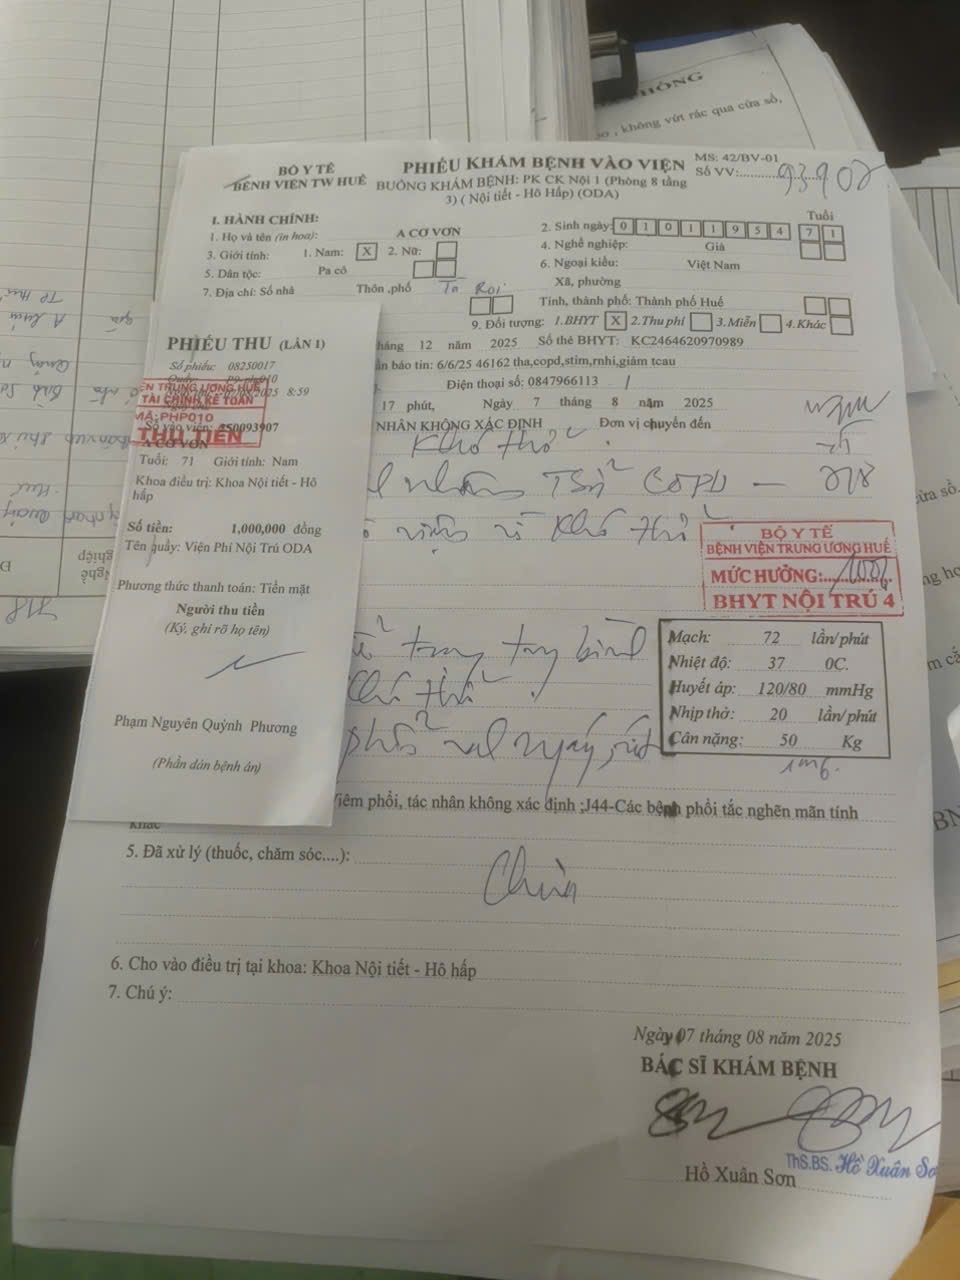 HÒNG
, không vứt rác qua cửa sổ,
BỘ Y TẾ
BỆNH VIỆN TW HUẾ
PHIẾU KHÁM BỆNH VÀO VIỆN
BUỒNG KHÁM BỆNH: PK CK Nội 1 (Phòng 8 tầng
3) ( Nội tiết - Hô Hấp) (ODA)
MS: 42/BV-01
Số VV:
I. HÀNH CHÍNH:
1. Họ và tên (in hoa): A CƠ VƠN
2. Sinh ngày: 0 1 0 1 1 9 5 4
Tuổi
7 1
3. Giới tính: 1. Nam: X 2. Nữ:
4. Nghề nghiệp: Già
5. Dân tộc: Pa cô
6. Ngoại kiều: Việt Nam
7. Địa chỉ: Số nhà Thôn ,phố Ta Roi
Xã, phường
Tỉnh, thành phố: Thành phố Huế
9. Đối tượng: 1.BHYT X 2.Thu phí 3.Miễn 4.Khác
háng 12 năm 2025 Số thẻ BHYT: KC2464620970989
ần báo tin: 6/6/25 46162 tha,copd,stim,rnhi,giảm tcau
Điện thoại số: 0847966113
17 phút, Ngày 7 tháng 8 năm 2025
NHÂN KHÔNG XÁC ĐỊNH Đơn vị chuyển đến
Khó thở
COPD
khó thở
PHIẾU THU (LẦN 1)
Số phiếu: 08250017
8:59
ỆN TRUNG ƯƠNG HUẾ
TÀI CHÍNH KẾ TOÁN
MÃ:PHP010
Số vào viện: 250093907
THU TIỀN
A CƠ VƠN
Tuổi: 71 Giới tính: Nam
Khoa điều trị: Khoa Nội tiết - Hô
hấp
Số tiền: 1,000,000 đồng
Tên quầy: Viện Phí Nội Trú ODA
Phương thức thanh toán: Tiền mặt
Người thu tiền
(Ký, ghi rõ họ tên)
Phạm Nguyên Quỳnh Phương
(Phần dán bệnh án)
BỘ Y TẾ
BỆNH VIỆN TRUNG ƯƠNG HUẾ
MỨC HƯỞNG: 100%
BHYT NỘI TRÚ 4
Mạch: 72 lần/phút
Nhiệt độ: 37 0C.
Huyết áp: 120/80 mmHg
Nhịp thở: 20 lần/phút
Cân nặng: 50 Kg
1m6.
khó thở
iêm phổi, tác nhân không xác định ;J44-Các bệnh phổi tắc nghẽn mãn tính
khác
5. Đã xử lý (thuốc, chăm sóc....):
6. Cho vào điều trị tại khoa: Khoa Nội tiết - Hô hấp
7. Chú ý:
Ngày 07 tháng 08 năm 2025
BÁC SĨ KHÁM BỆNH
ThS.BS. Hồ Xuân Sơ
Hồ Xuân Sơn